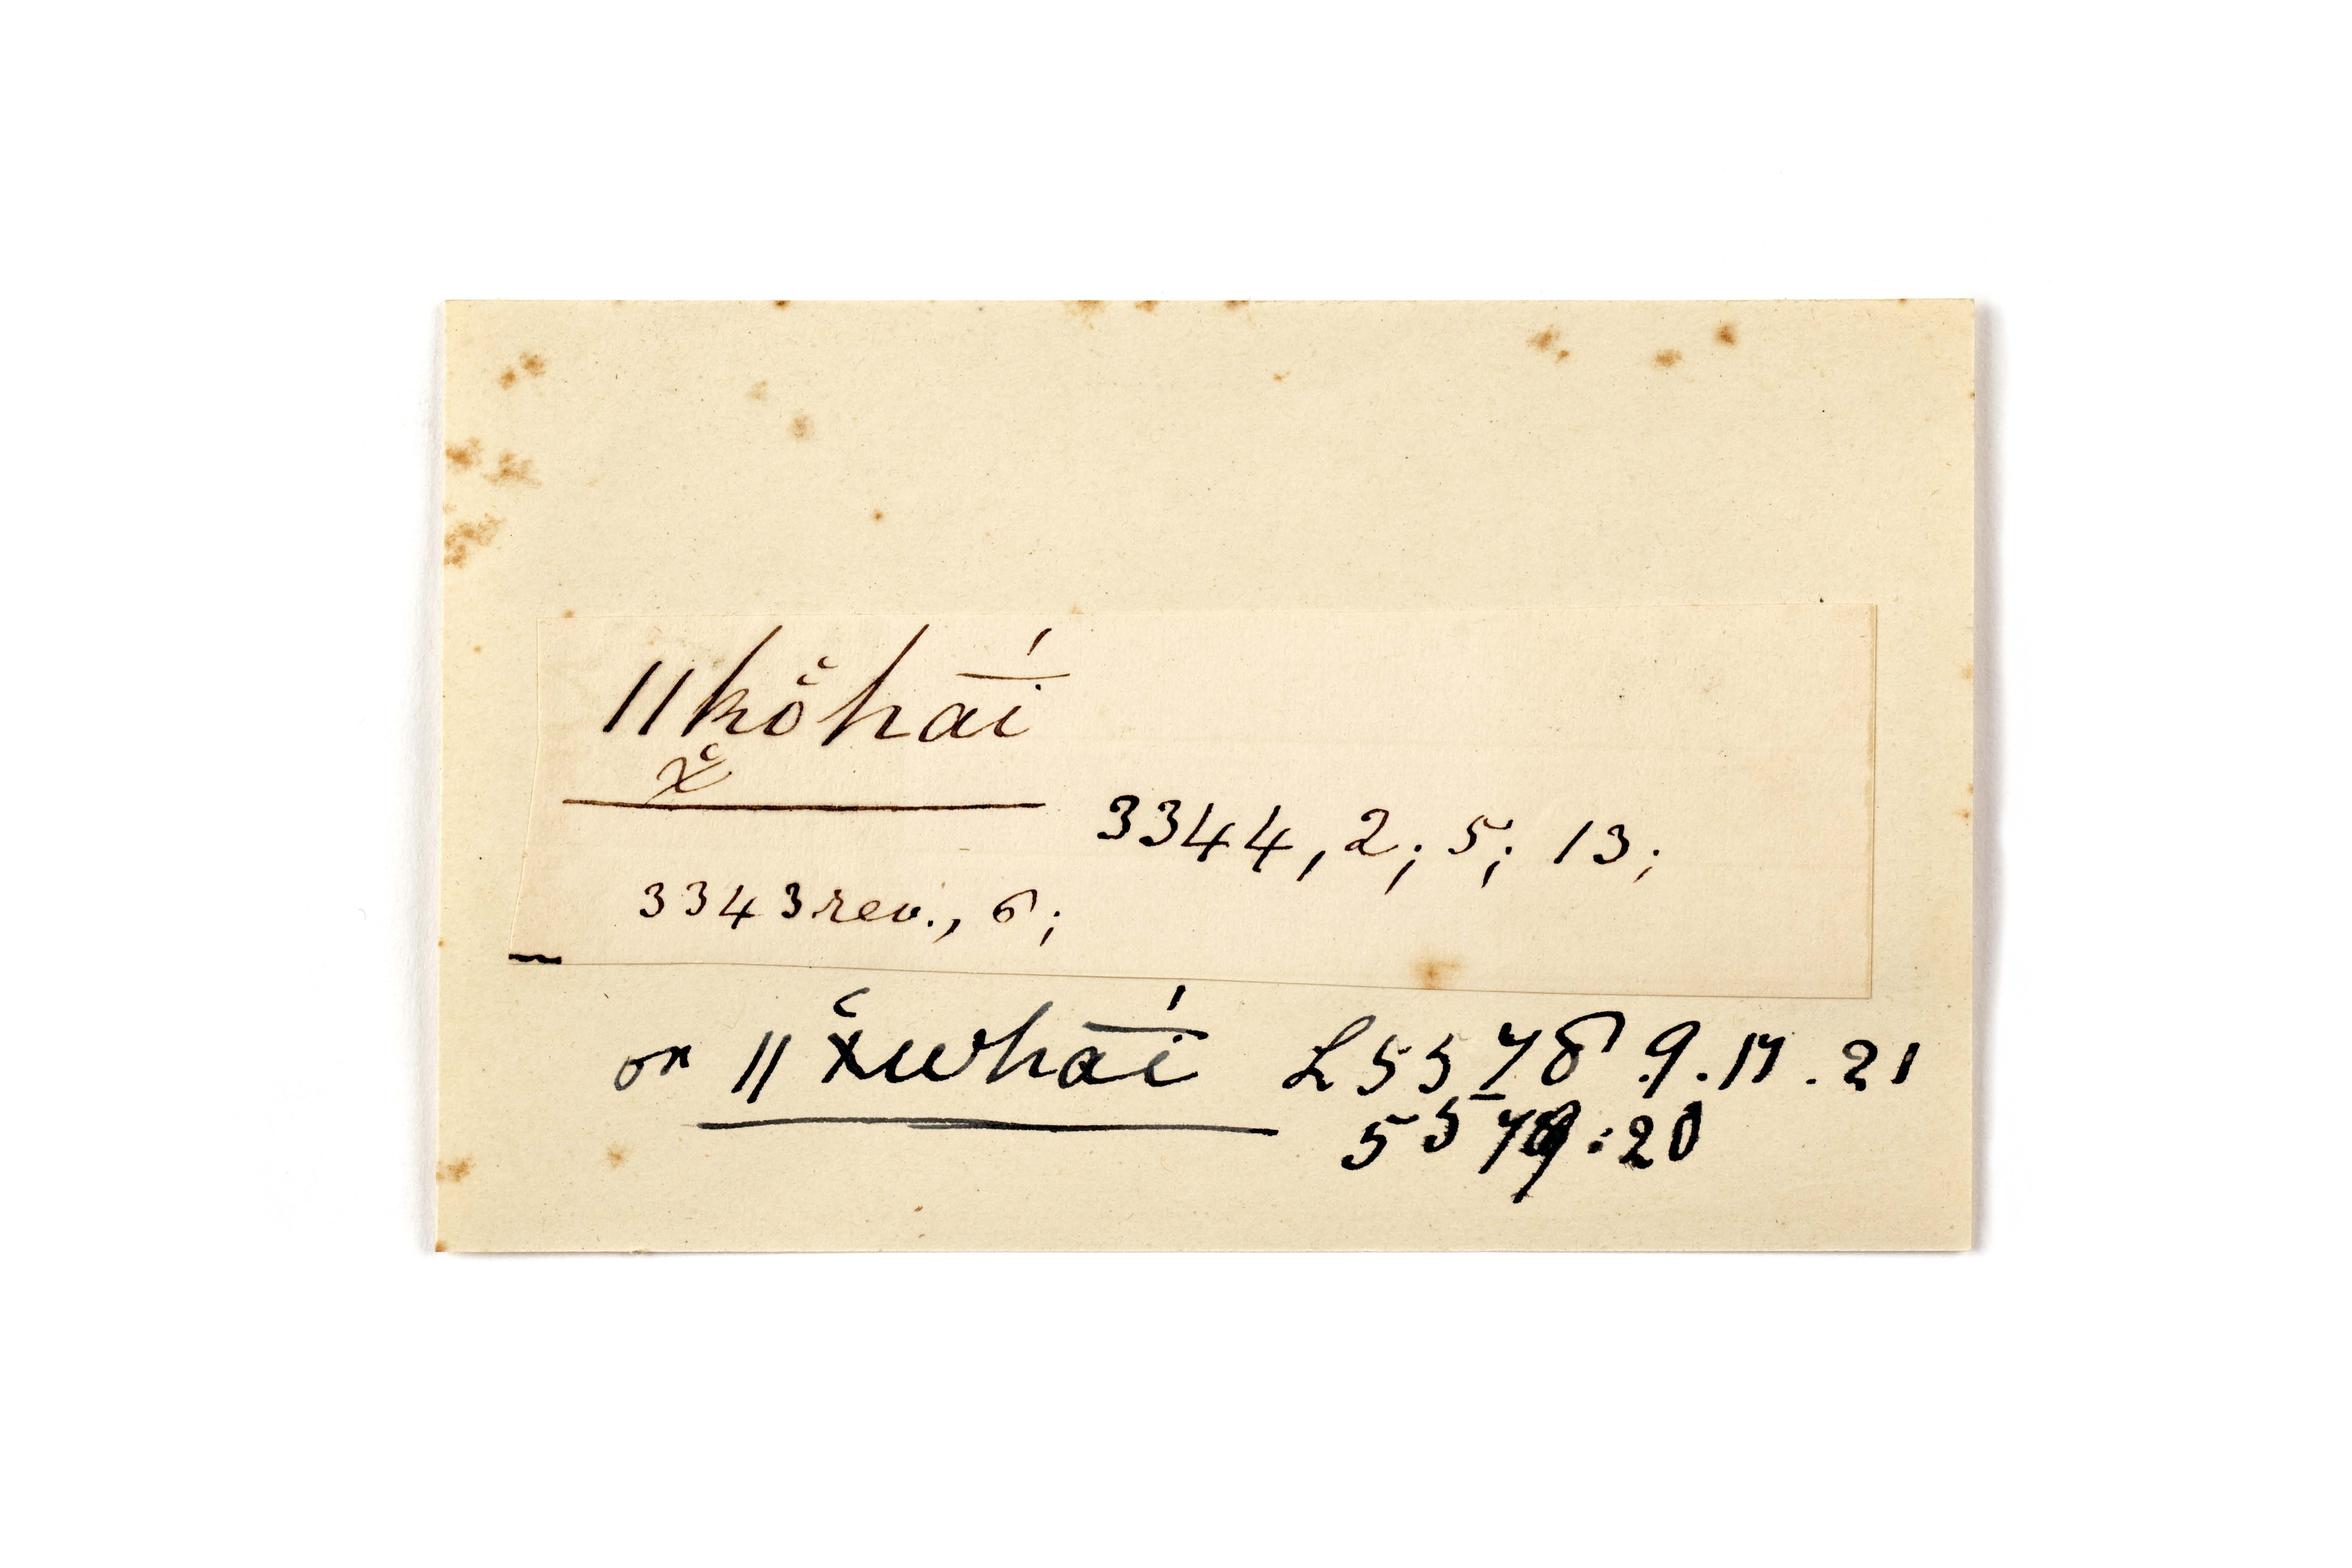 ǁkö̆hāí
x̆
3344, 2; 5; 13;
3343 rev., 6;
or ǁx̆whāí L 5578 9. 17. 21
5579: 20